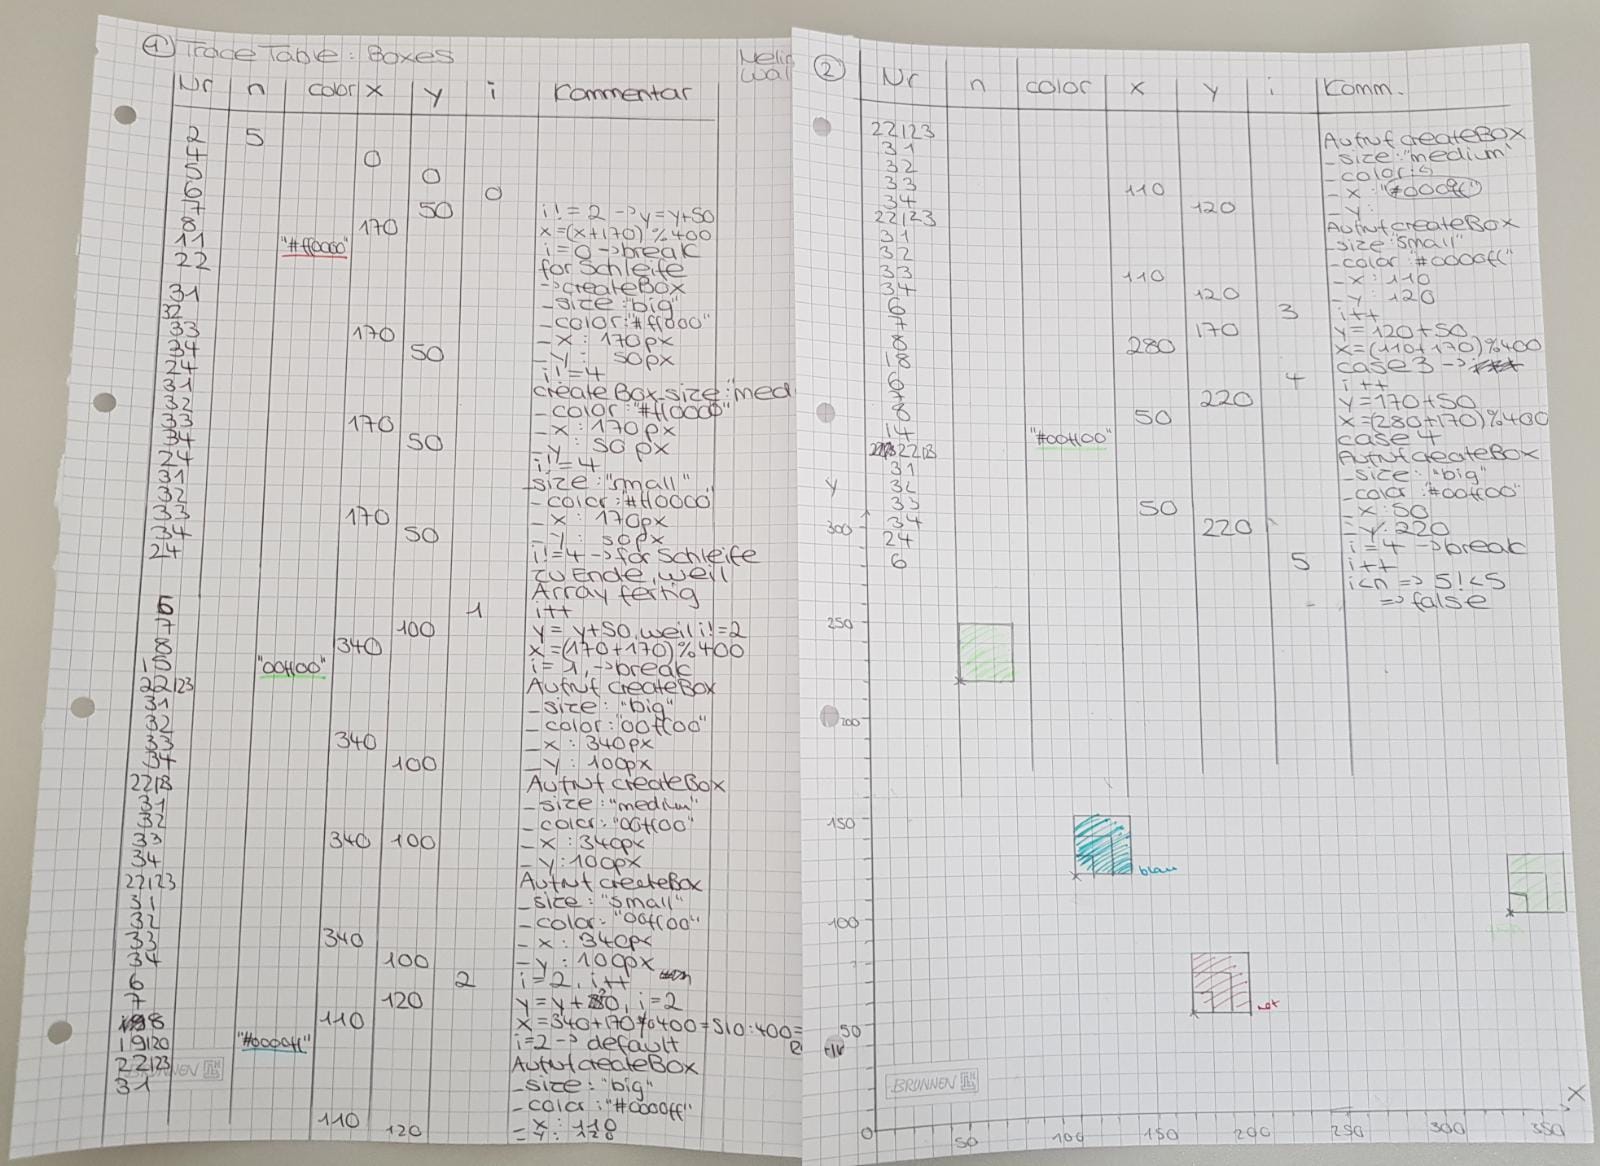 ① Trace Table: Boxes
Nr n color x y i Kommentar
2 5
4 0
5 0
6 0
7 50 i!=2 → y=y+50
8 170 x=(x+170)%400
11 "#ff0000" i=0 → break
22 for Schleife
→ createBox
31 - size: "big"
32 - color: "#ff0000"
33 170 - x: 170px
34 50 - y: 50px
24 i!=4
31 createBox size: "med
32 - color: "#ff0000"
33 170 - x: 170px
34 50 - y: 50px
24 i!=4
31 - size: "small"
32 - color: "#ff0000"
33 170 - x: 170px
34 50 - y: 50px
24 i!=4 → for Schleife
zu Ende, weil
Array fertig
6 1 i++
7 100 y=y+50, weil i!=2
8 340 x=(170+170)%400
15 "00ff00" i=1, → break
22|23 Aufruf createBox
31 - size: "big"
32 - color: "00ff00"
33 340 - x: 340px
34 100 - y: 100px
22|23 Aufruf createBox
31 - size: "medium"
32 - color: "00ff00"
33 340 100 - x: 340px
34 - y: 100px
22|23 Aufruf createBox
31 - size: "small"
32 - color: "00ff00"
33 340 - x: 340px
34 100 - y: 100px
6 2 i=2, i++
7 120 y=y+ 0, i=2
8 110 x=340+170%400=510:400=
19|20 "#0000ff" i=2 → default
22|23 Aufruf createBox
31 - size: "big"
- color: "#0000ff"
110 - x: 110
120 - y: 120
BRUNNEN
② Nr n color x y i Komm.
22|23 Aufruf createBox
31 - size: "medium"
32 - color:
33 110 - x: "#0000ff"
34 120 - y:
22|23 Aufruf createBox
31 - size "small"
32 - color: #0000ff"
33 110 - x: 110
34 120 - y: 120
6 3 i++
7 170 y=120+50
8 280 x=(110+170)%400
18 case 3 →
6 4 i++
7 220 y=170+50
8 50 x=(280+170)%400
14 "#00ff00" case 4
22|23 Aufruf createBox
31 - size: "big"
32 - color: #00ff00"
33 50 - x: 50
34 220 - y: 220
24 i=4 → break
6 5 i++
i<n => 5!<5
=> false
y
300
250
200
150
blau
100
rot
50
BRUNNEN
x
0 50 100 150 200 250 300 350